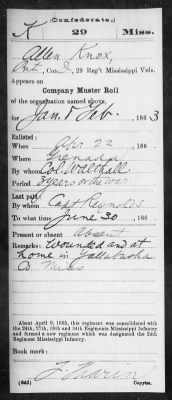 (Confederate.)
K 29 Miss.
Allen Knox,
Pvt, Co. D, 29 Reg't Mississippi Vols.
Appears on
Company Muster Roll
of the organization named above,
for Jan & Feb, 1863
Enlisted:
When Apr 22, 186
Where Grenada
By whom Col. Walthall
Period 3 years or the war
Last paid:
By whom Capt Reynolds
To what time June 30, 186
Present or absent Absent
Remarks: Wounded and at
home in Yallabusha
Miss
About April 9, 1865, this regiment was consolidated with
the 24th, 27th, 30th and 34th Regiments Mississippi Infantry
and formed a new regiment which was designated the 24th
Regiment Mississippi Infantry.
Book mark:
(642) Copyist.